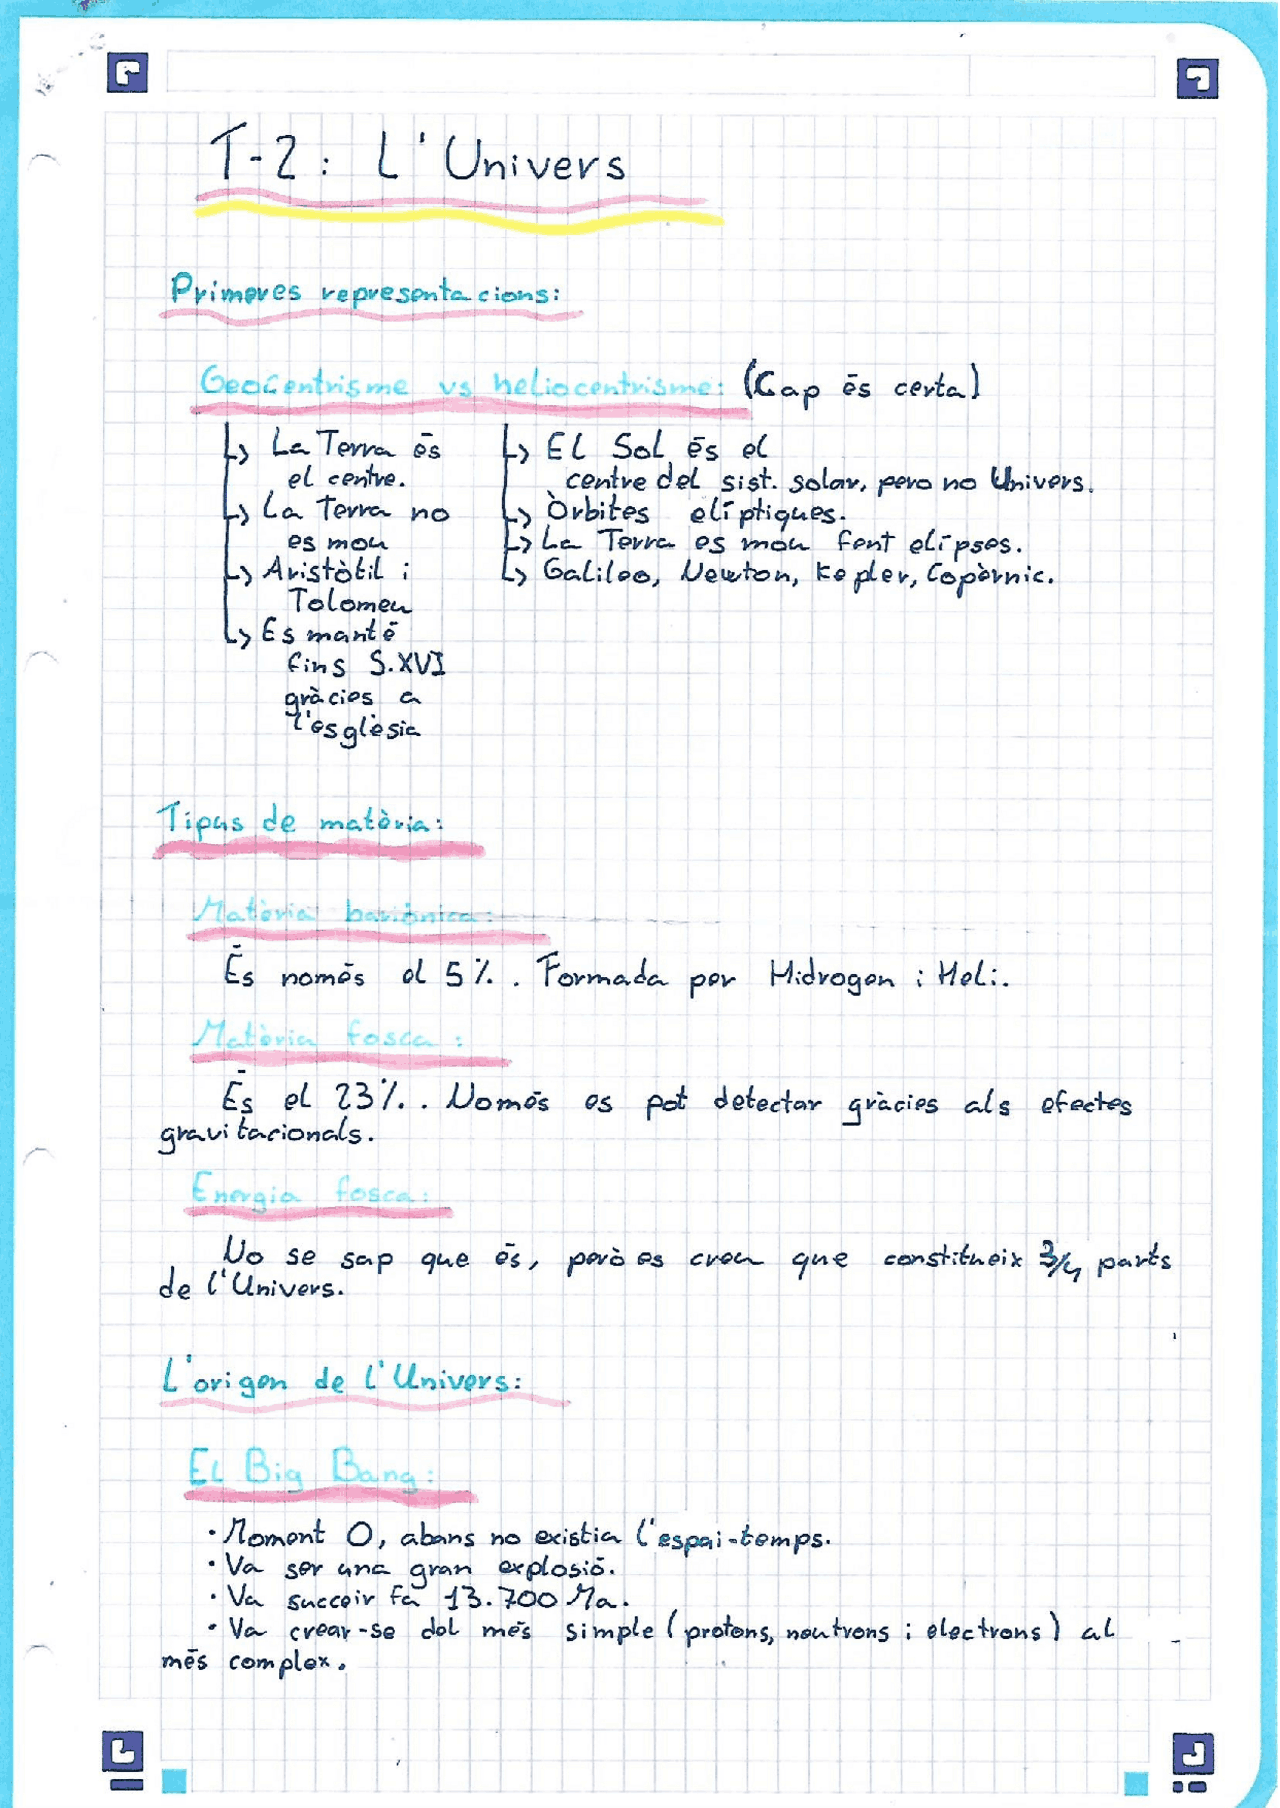 T-2: L'Univers
Primeres representacions:
Geocentrisme vs heliocentrisme: (Cap és certa)
↳ La Terra és
el centre.
↳ La Terra no
es mou
↳ Aristòtil i
Tolomeu
↳ Es manté
fins S.XVI
gràcies a
l'esglèsia
↳ El Sol és el
centre del sist. solar, pero no Univers.
↳ Òrbites elíptiques.
↳ La Terra es mou fent elípses.
↳ Galileo, Newton, Kepler, Copèrnic.
Tipus de matèria:
Matèria bariònica:
És només el 5%. Formada per Hidrogen i Heli.
Matèria fosca:
És el 23%.. Només es pot detectar gràcies als efectes
gravitacionals.
Energia fosca:
No se sap que és, però es creu que constitueix 3/4 parts
de l'Univers.
L'origen de l'Univers:
El Big Bang:
· Moment 0, abans no existia l'espai-temps.
· Va ser una gran explosió.
· Va succeir fa 13.700 Ma.
· Va crear-se del més simple (protons, neutrons i electrons) al
més complex.